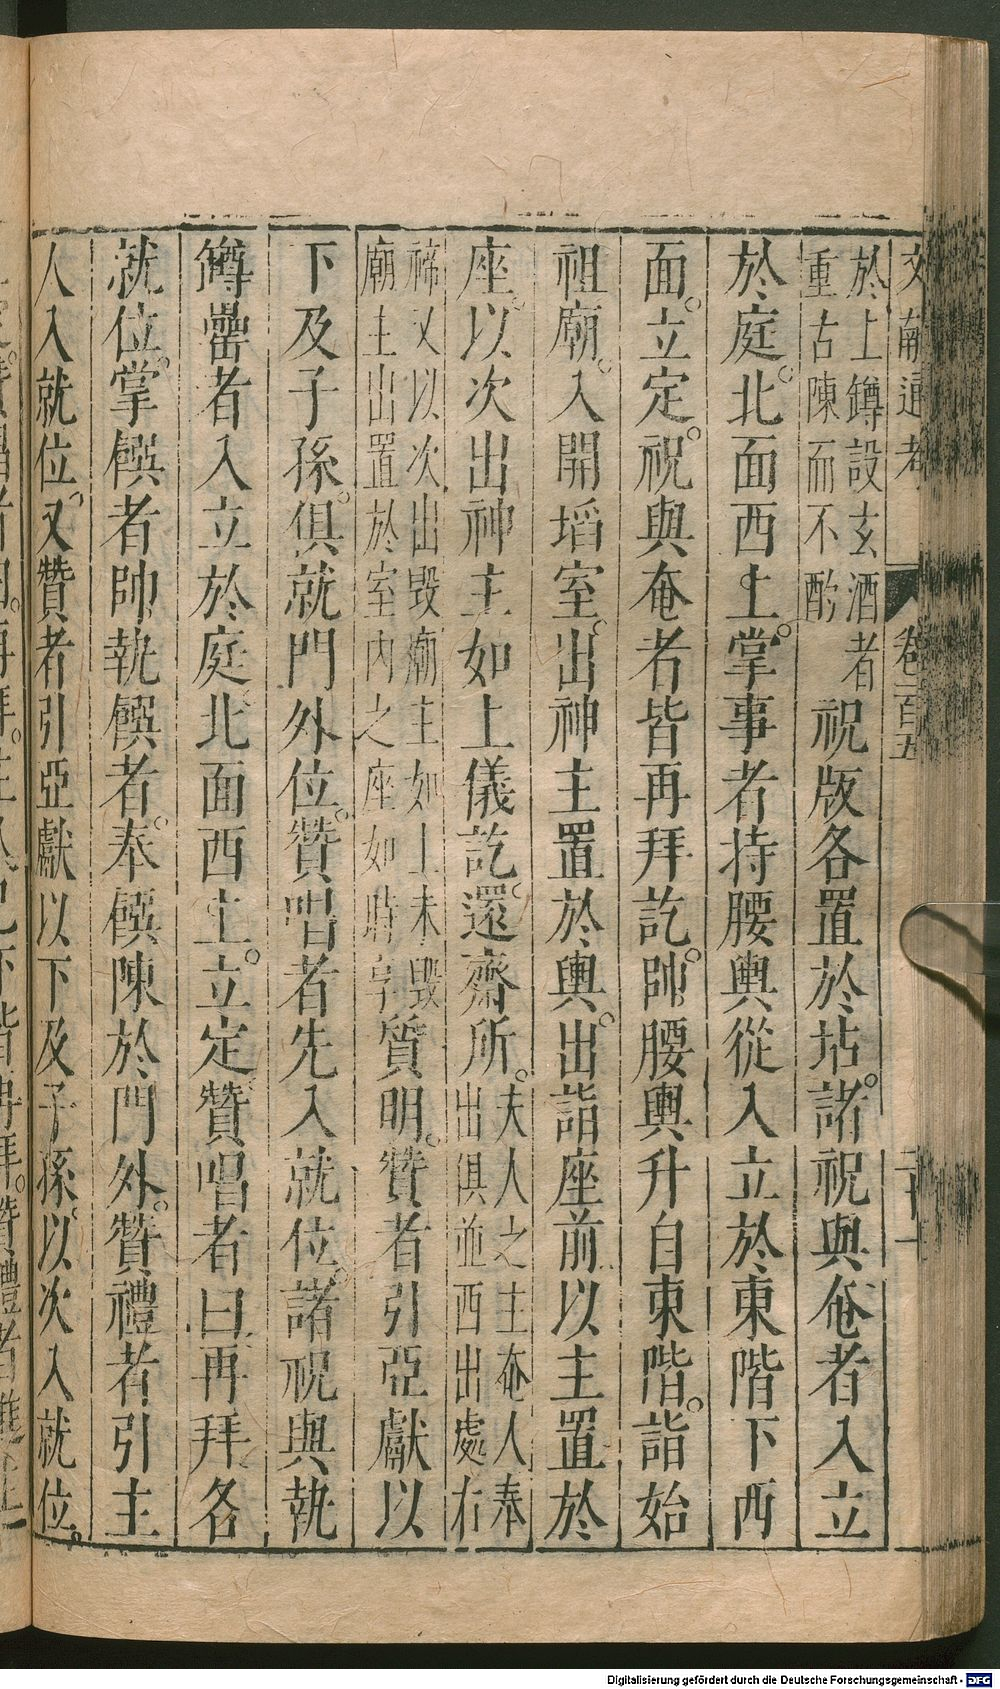 文獻通考 卷一百五 二十一
於上鐏設玄酒者
重古陳而不酌
祝版各置於坫。諸祝與奄者入立
於庭。北面西上。掌事者持腰輿從入立於東階下西
面。立定。祝與奄者皆再拜訖。帥腰輿升自東階。詣始
祖廟。入開埳室。出神主置於輿。出詣座前以主置於
座。以次出神主如上儀訖。還齋所。
夫人之主奄人奉
出俱並西出處右
禘又以次出毀廟主如上未毀
廟主出置於室內之座如時享
質明。贊者引亞獻以
下及子孫。俱就門外位。贊唱者先入就位諸祝與執
鐏罍者入立於庭北面西上。立定贊唱者曰再拜各
就位。掌饌者帥執饌者。奉饌陳於門外。贊禮者引主
人入就位。又贊者引亞獻以下及子孫。以次入就位。
Digitalisierung gefördert durch die Deutsche Forschungsgemeinschaft - DFG